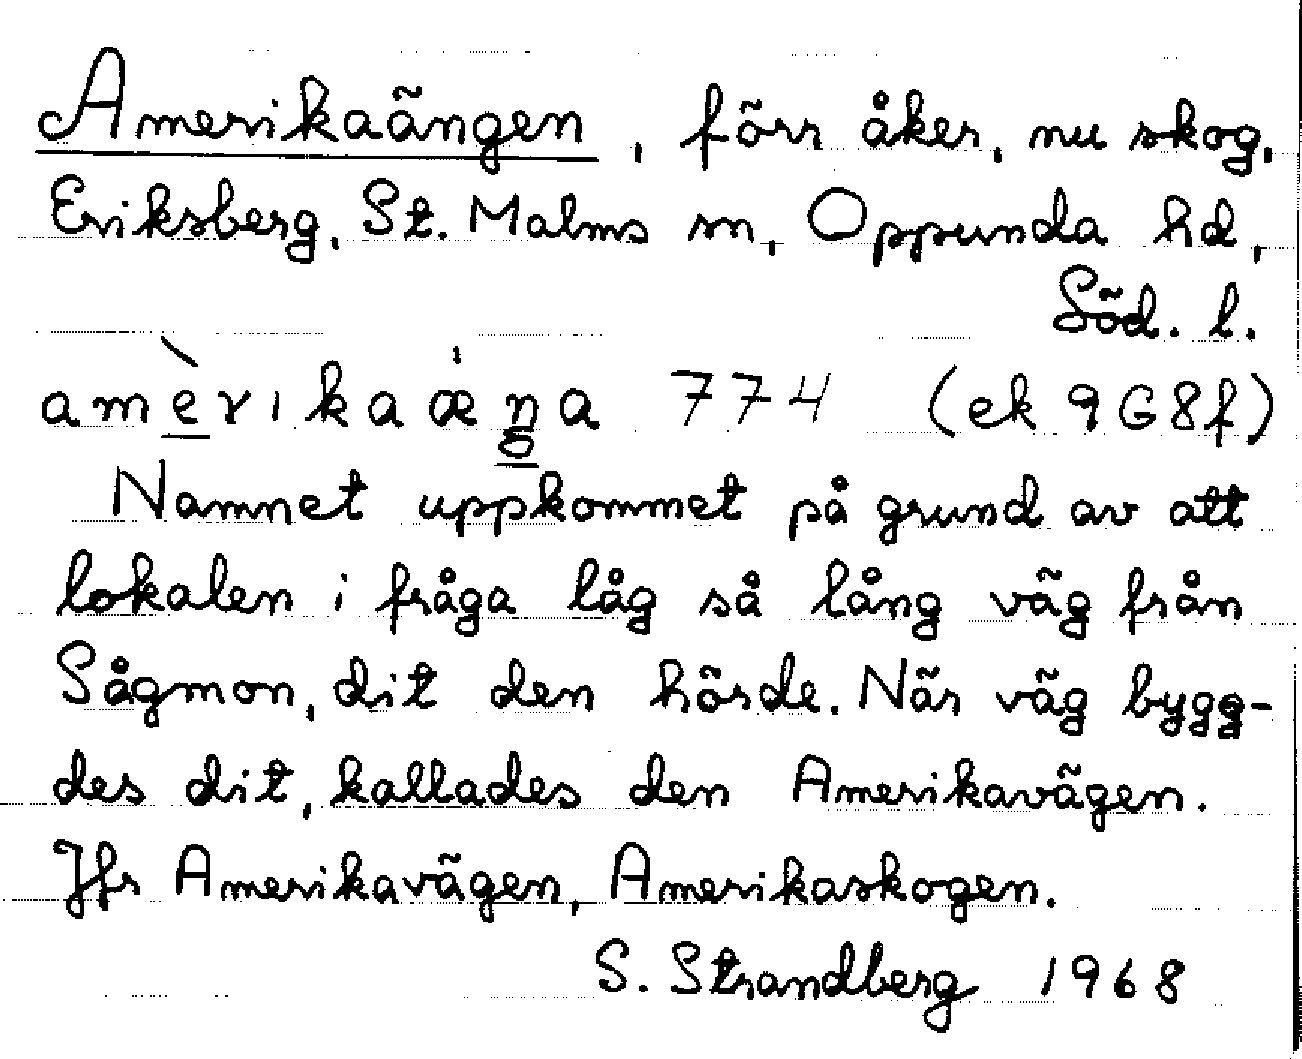 Amerikaängen, förr åker, nu skog,
Eriksberg, St. Malms sn, Oppunda hd,
Söd. l.
amèrikaæ̍ŋa 774 (ek 9G8f)
Namnet uppkommet på grund av att
lokalen i fråga låg så lång väg från
Sågmon, dit den hörde. När väg bygg-
des dit, kallades den Amerikavägen.
Jfr Amerikavägen, Amerikaskogen.
S. Strandberg 1968